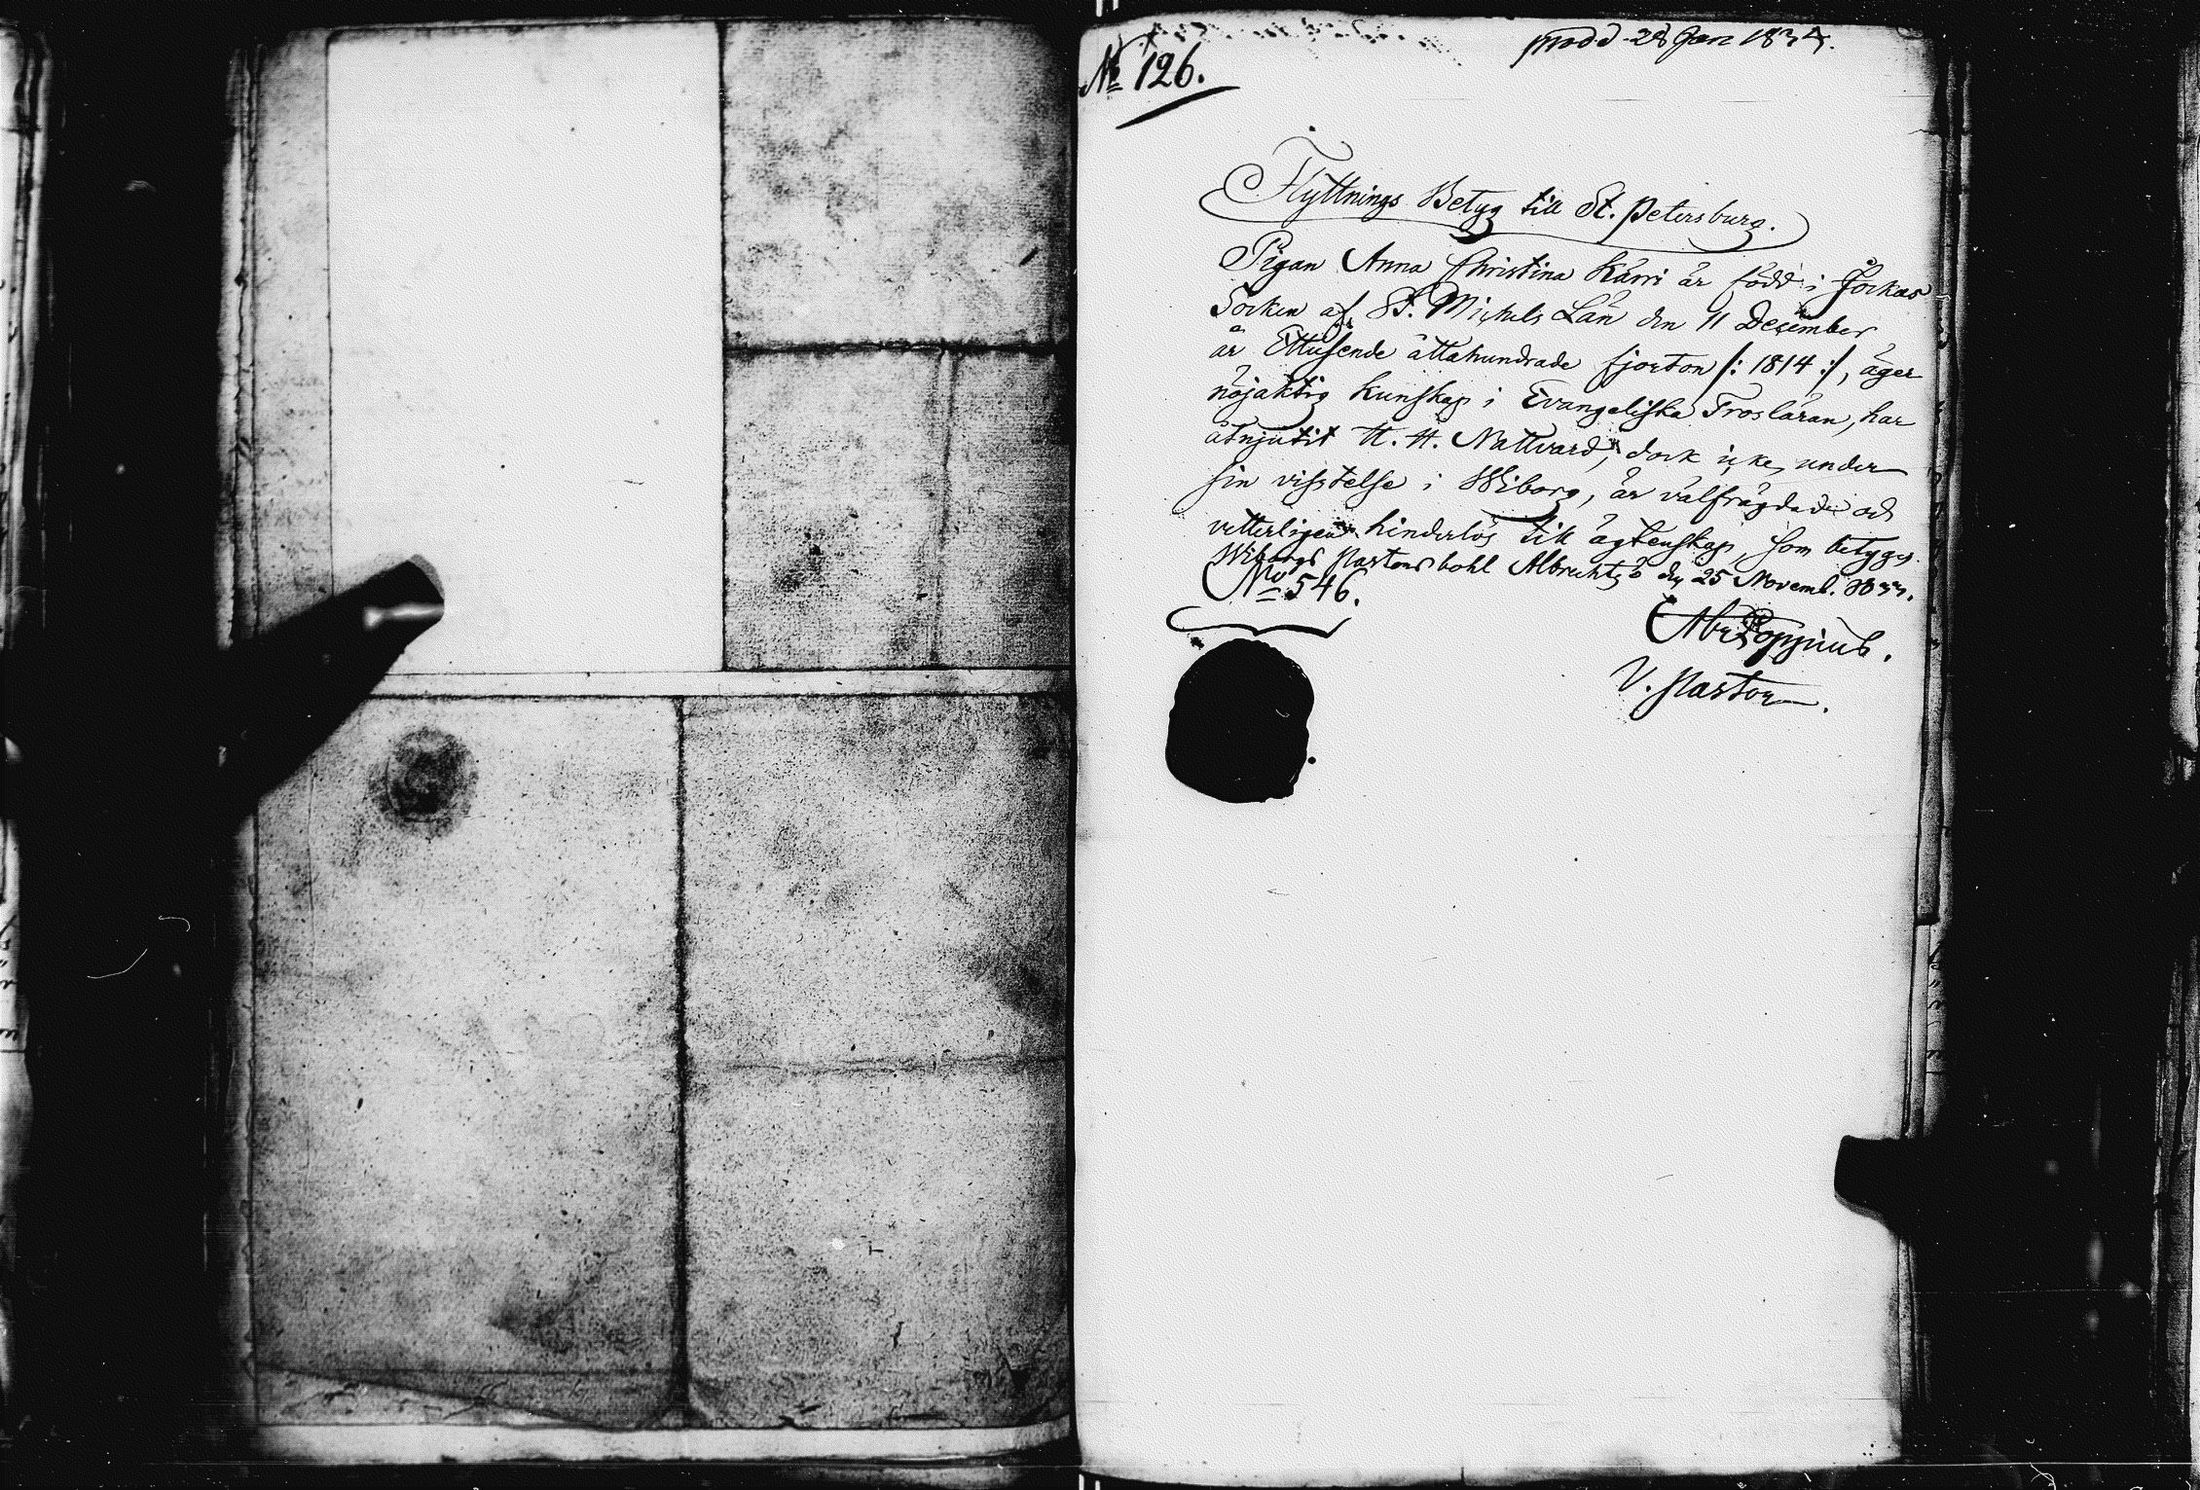 prod. 28 Jan 1834.
No 126.
Flyttnings Betyg till St. Petersburg.
Pigan Anna Christina Kärri är född i Jockas
Socken af St. Michels Län den 11 December
år Ettusende åttahundrade fjorton /: 1814 :/, äger
nöjaktig kunskap i Evangeliska Trosläran, har
åtnjutit H. H. Nattvard, dock icke under
sin visstelse i Wiborg, är välfrägdade och
vetterligen hinderlös till ägtenskap, som betygas
Wiborgs Pastorsbohl Albrechtsö den 25 Novemb. 1833.
No 546.
Poppius.
V. Pastor.